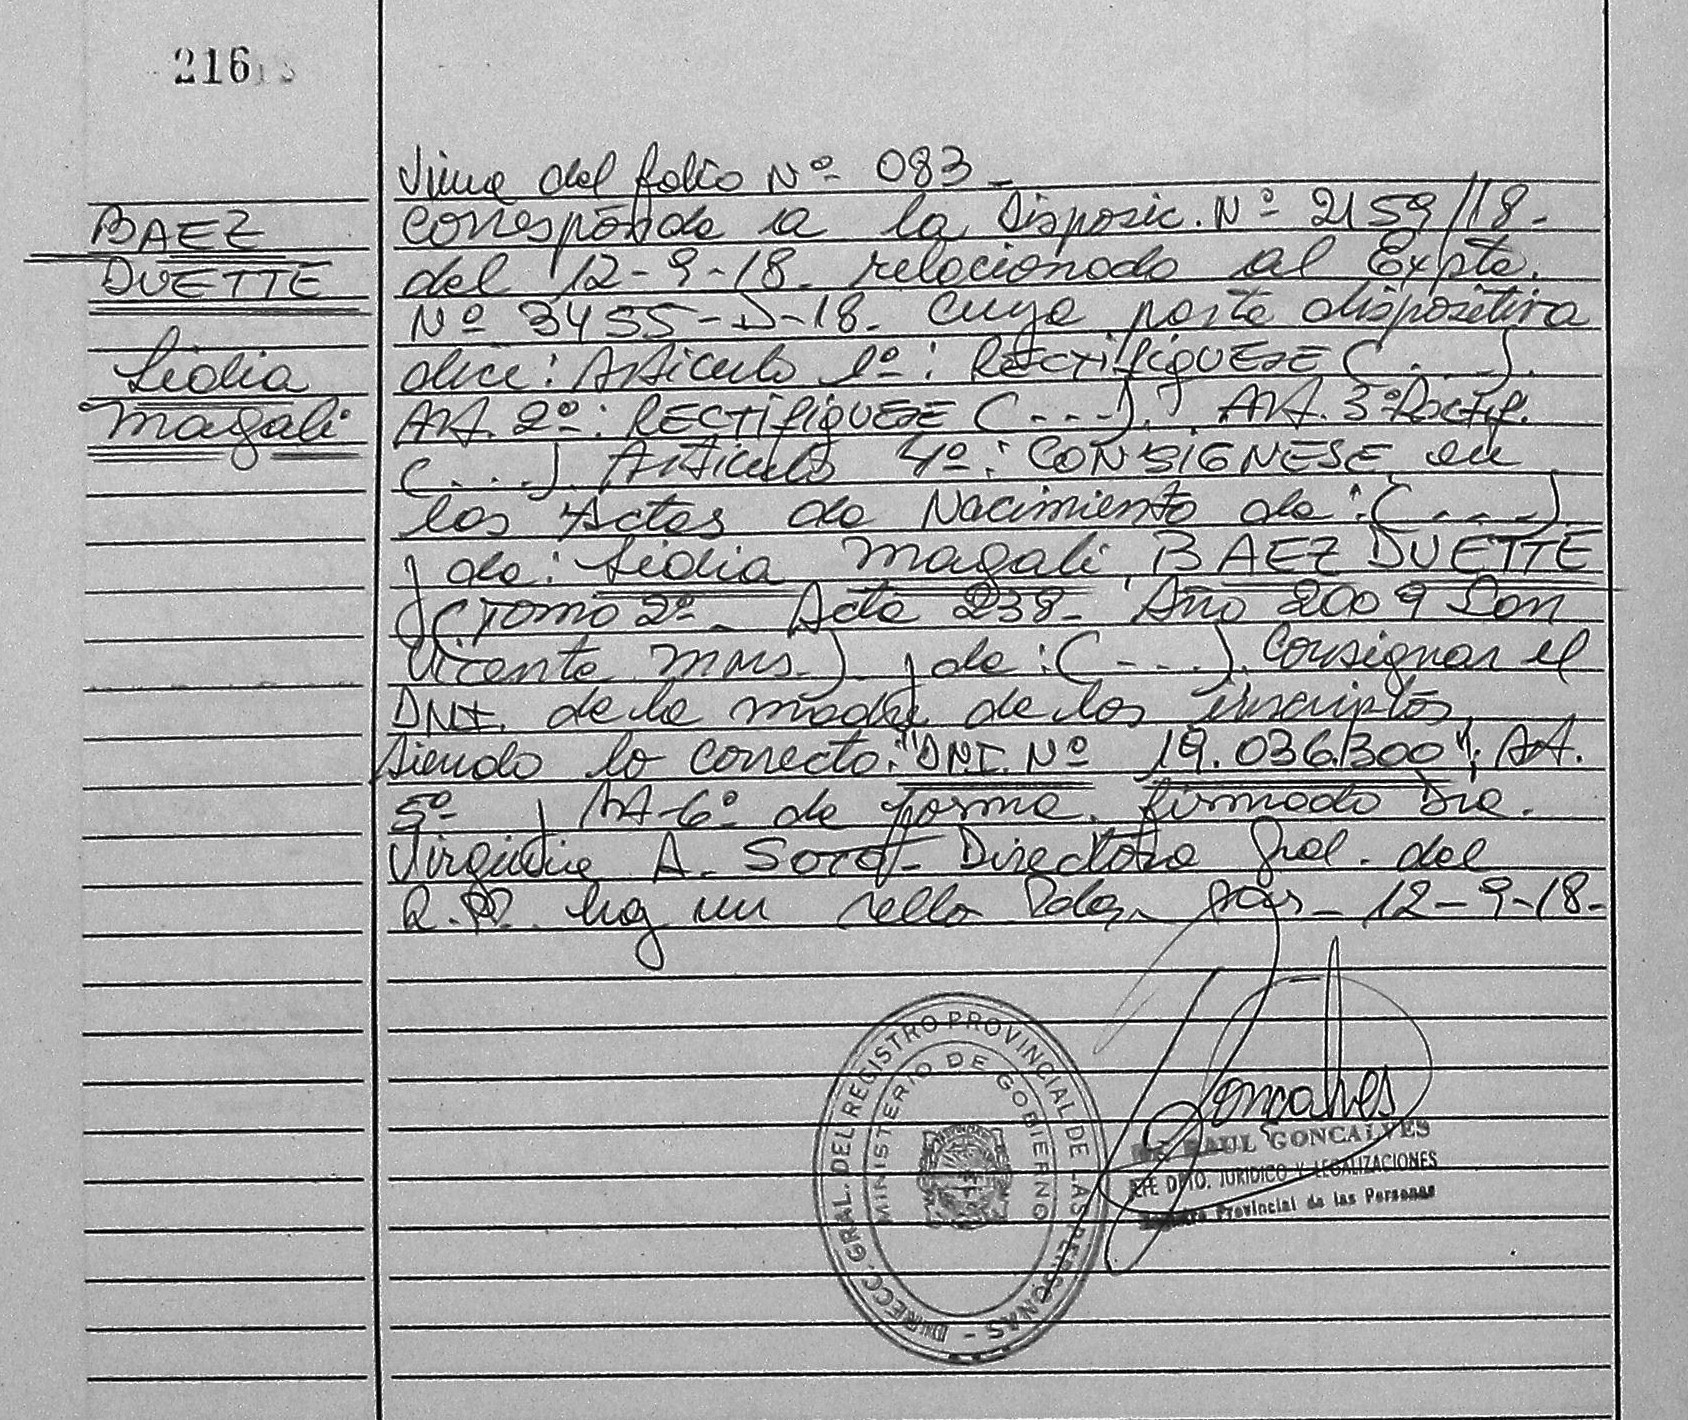 216
BAEZ
DUETTE
Lidia
Magali
Viene del folio Nº 083-
Corresponde a la Disposic. Nº 2159/18-
del 12-9-18- relacionado al Expte.
Nº 3455-D-18- cuya parte dispositiva
dice: Artículo 1º: RECTIFIQUESE (...).
Art. 2º: RECTIFIQUESE (---). Art. 3º Rectif.
(...). Artículo 4º: CONSIGNESE en
las Actas de Nacimiento de: (---)
y de: Lidia Magali BAEZ DUETTE
(Tomo 2º- Acta 238- Año 2009 San
Vicente Mnes.) y de: (---). Consignar el
DNI. de la madre de los inscriptos,
siendo lo correcto: "DNI. Nº 19.036.300"; Art.
5º y Art-6º de forma. firmado Dra.
A. Directora Gral. del
R.P. hay un sello Pdas- 12-9-18-
Goncalves
RAUL GONCALVES
JEFE DPTO. JURIDICO Y LEGALIZACIONES
Registro Provincial de las Personas
DIRECC. GRAL. DEL REGISTRO PROVINCIAL DE LAS PERSONAS -
MINISTERIO DE GOBIERNO